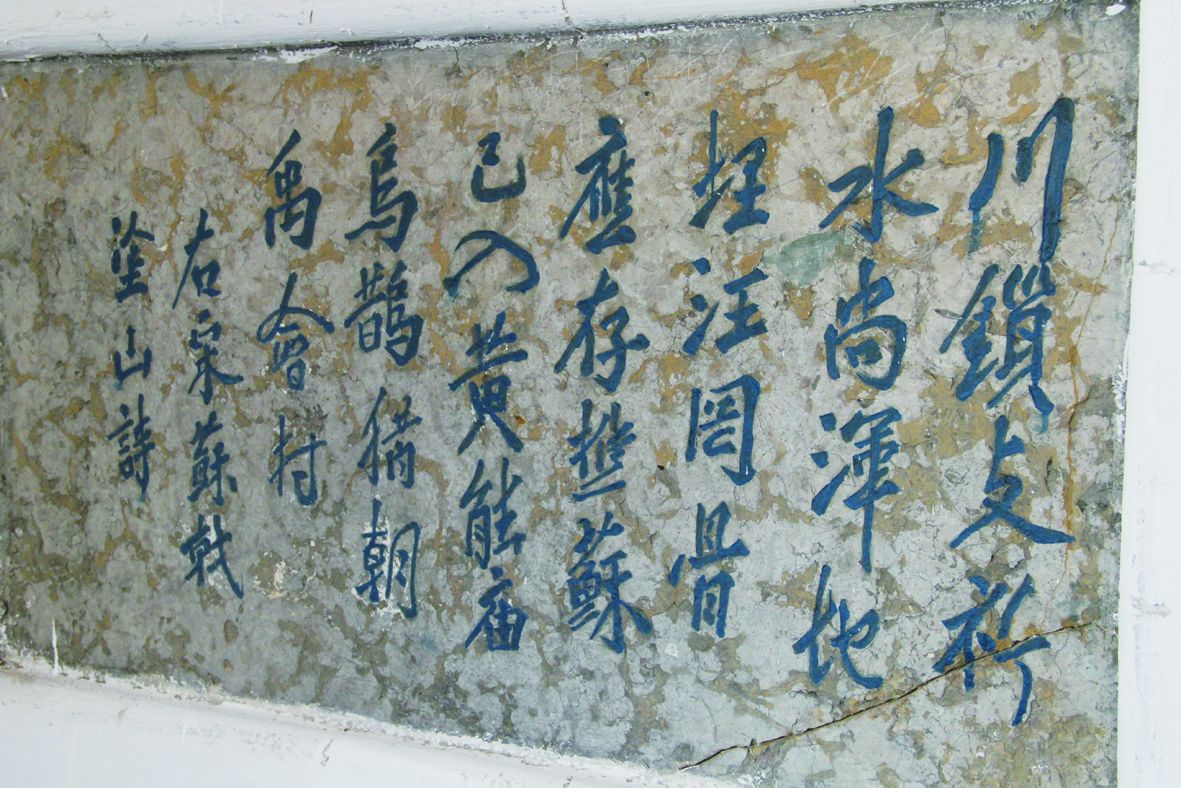 川鎖支祈
水尚渾地
埋汪罔骨
應存樵蘇
已入黄能庙
烏鵲猶朝
禹會村
右宋蘇軾
塗山詩